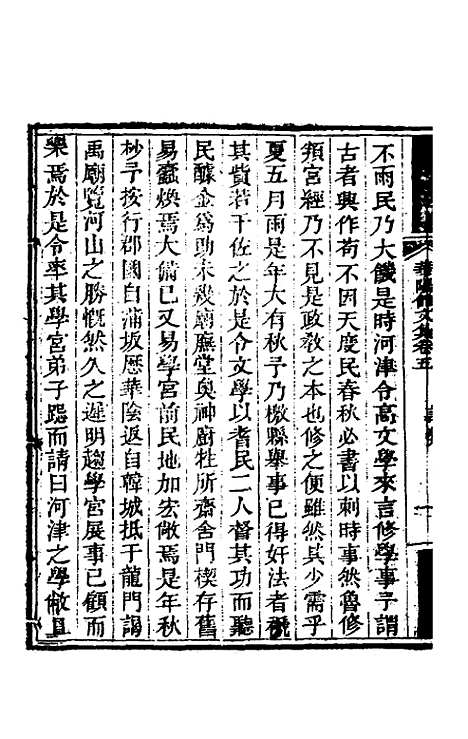 華陽館文集卷五
不雨民乃大饑是時河津令高文學來言修學事予謂
古者興作苟不因天度民春秋必書以刺時事然魯修
頖宮經乃不見是政敎之本也修之便雖然其少需乎
夏五月雨是年大有秋予乃檄縣舉事已得奸法者稅
其貲若干佐之於是令文學以耆民二人督其功而聽
民醵金爲助未幾廟廡堂奥神廚牲所齋舍門楔存舊
易蠹煥焉大備已又易學宮前民地加宏敞焉是年秋
杪予按行郡國自蒲坂歷華陰返自韓城抵于龍門謁
禹廟覽河山之勝慨然久之遲明趨學宮展事已顧而
樂焉於是令率其學官弟子跽而請曰河津之學敝且